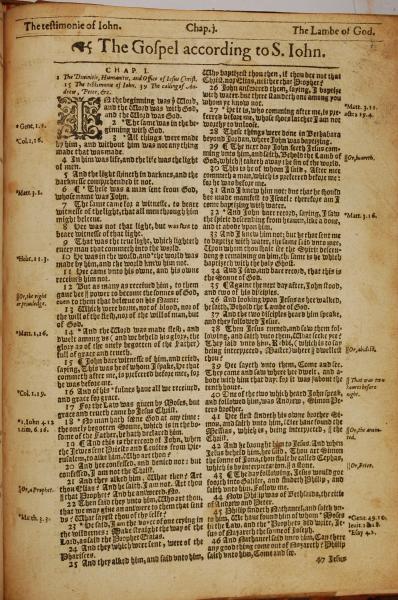 The testimonie of Iohn.
Chap.j.
The Lambe of God.
The Gospel according to S. Iohn.
CHAP. I.
1 The Diuinitie, Humanitie, and Office of Iesus Christ.
15 The testimonie of Iohn. 39 The calling of An-
drew, Peter, &c.
IN the beginning was ý Word,
and the Word was with God,
and the Word was God.
2 *The same was in the be-
ginning with God.
3 *All things were made
by him, and without him was not any thing
made that was made.
4 In him was life, and the life was the light
of men.
5 And the light shineth in darknes, and the
darknesse comprehended it not.
6 ¶ *There was a man sent from God,
whose name was Iohn.
7 The same came for a witnesse, to beare
witnesse of the light, that all men through him
might beleeue.
8 Hee was not that light, but was sent to
beare witnesse of that light.
9 That was the true light, which lighteth
euery man that commeth into the world.
10 Hee was in the world, and *the world was
made by him, and the world knew him not.
11 Hee came vnto his owne, and his owne
receiued him not.
12 But as many as receiued him, to them
gaue hee power to become the sonnes of God,
euen to them that beleeue on his Name:
13 Which were borne, not of blood, nor of
the will of the flesh, nor of the will of man, but
of God.
14 *And the Word was made flesh, and
dwelt among vs (and we beheld his glory, the
glory as of the onely begotten of the Father)
full of grace and trueth.
15 ¶ Iohn bare witnesse of him, and cried,
saying, This was he of whom I spake, He that
commeth after me, is preferred before me, for
he was before me.
16 And of his *fulnes haue all we receiued,
and grace for grace.
17 For the Law was giuen by Moses, but
grace and trueth came by Iesus Christ.
18 *No man hath seene God at any time:
the onely begotten Sonne, which is in the bo-
some of the Father, he hath declared him.
19 ¶ And this is the record of Iohn, when
the Iewes sent Priests and Leuites from Hie-
rusalem, to aske him, Who art thou?
20 And he confessed, and denied not: but
confessed, I am not the Christ.
21 And they asked him, What then? Art
thou Elias? And he saith, I am not. Art thou
that Prophet? And he answered, No.
22 Then said they vnto him, Who art thou,
that we may giue an answere to them that sent
vs? What sayest thou of thy selfe?
23 *He said, I am the voyce of one crying in
the wildernes: Make straight the way of the
Lord, as said the Prophet Esaias.
24 And they which were sent, were of the
Pharisees.
25 And they asked him, and said vnto him,
* Gene.1.1.
*Col.1.16.
*Matt.3.1.
||Or, the right
or priuiledge.
*Matt.1.16.
*Col.1.19.
*1.Iohn 4.12
1.tim.6.16.
||Or, a Prophet.
*Matth.3.3.
Why baptizest thou then, if thou be not that
Christ, nor Elias, neither that Prophet?
26 Iohn answered them, saying, I baptize
with water, but there standeth one among you
whom ye know not.
27 *He it is, who comming after me, is pre-
ferred before me, whose shoes latchet I am not
worthy to vnloose.
28 These things were done in Bethabara
beyond Iordan, where Iohn was baptizing.
29 ¶ The next day Iohn seeth Iesus com-
ming vnto him, and saith, Behold the Lambe of
God, which ||taketh away the sin of the world.
30 This is he of whom I said, After mee
commeth a man, which is preferred before me:
for he was before me.
31 And I knew him not: but that he should
bee made manifest to Israel: therefore am I
come baptizing with water.
32 *And Iohn bare record, saying, I saw
the Spirit descending from heauen, like a doue,
and it abode vpon him.
33 And I knew him not: but he that sent me
to baptize with water, the same said vnto mee,
Vpon whom thou shalt see the Spirit descen-
ding & remaining on him, the same is he which
baptizeth with the holy Ghost.
34 And I saw, and bare record, that this is
the Sonne of God.
35 ¶ Againe the next day after, Iohn stood,
and two of his disciples.
36 And looking vpon Iesus as he walked,
he saith, Behold the Lambe of God.
37 And the two disciples heard him speake,
and they followed Iesus.
38 Then Iesus turned, and saw them fol-
lowing, and saith vnto them, What seeke ye?
They said vnto him, Rabbi, (which is to say
being interpreted, Master) where ||dwellest
thou?
39 Hee sayeth vnto them, Come and see.
They came and saw where hee dwelt, and a-
bode with him that day: for it was ||about the
tenth houre.
40 One of the two which heard Iohn speake,
and followed him, was Andrew, Simon Pe-
ters brother.
41 Hee first findeth his owne brother Si-
mon, and saith vnto him, Wee haue found the
Messias, which is, being interpreted, ||the
Christ.
42 And he brought him to Iesus. And when
Iesus beheld him, hee said, Thou art Simon
the sonne of Iona, thou shalt be called Cephas,
which is by interpretation, ||a stone.
43 ¶ The day following, Iesus would goe
foorth into Galilee, and findeth Philip, and
saith vnto him, Follow me.
44 Now Philip was of Bethsaida, the citie
of Andrew and Peter.
45 Philip findeth Nathanael, and saith vn-
to him, We haue found him of whom *Moses
in the Law, and the *Prophets did write, Ie-
sus of Nazareth the sonne of Ioseph.
46 And Nathanael said vnto him, Can there
any good thing come out of Nazareth? Philip
saith vnto him, Come and see.
47 Iesus
*Matt.3.11.
actes 19.4.
||Or, beareth.
*Matt.3.16.
||Or, abidest.
||That was two
houres before
night.
||Or, the anoin-
ted.
||Or, Peter.
*Gene.49.10.
deut.18.18.
*Esay 4.2.